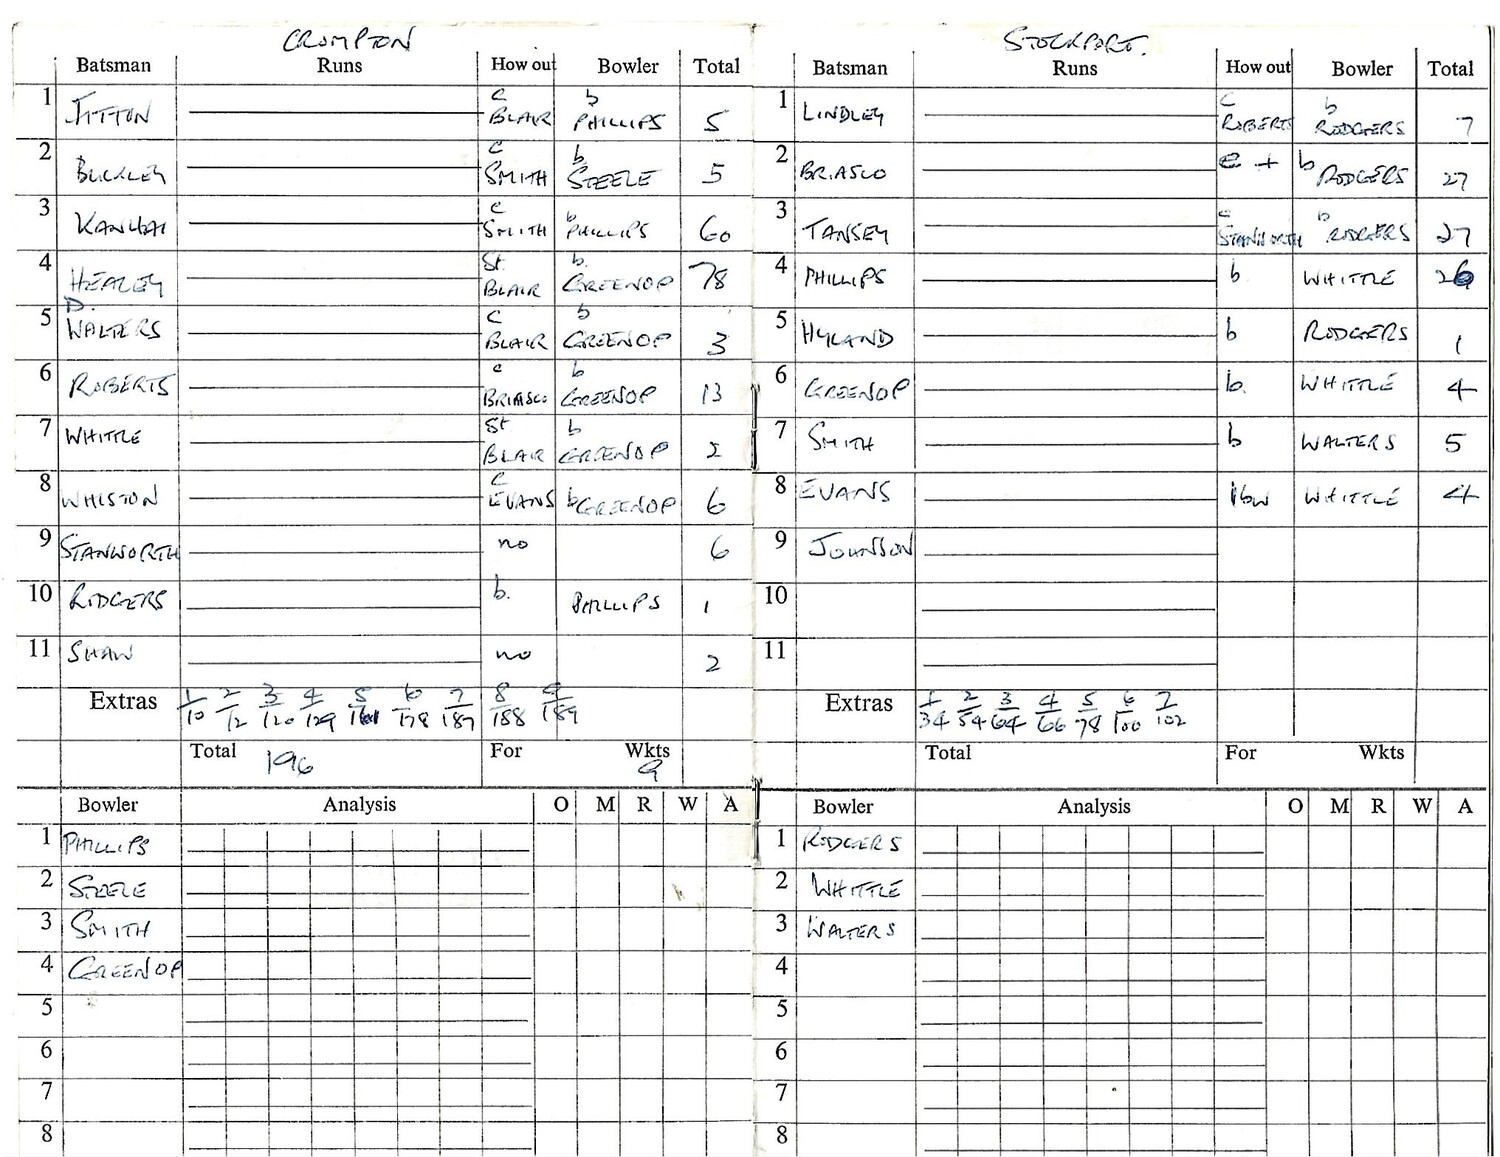 CROMPTON
Batsman Runs How out Bowler Total
1 FITTON c BLAIR b PHILLIPS 5
2 BUCKLEY c SMITH b STEELE 5
3 KANHAI c SMITH b PHILLIPS 60
4 HEALEY St BLAIR b. GREENOP 78
5 D. WALTERS c BLAIR b GREENOP 3
6 ROBERTS c BRIASCO b GREENOP 13
7 WHITTLE St BLAIR b GREENOP 2
8 WHISTON c EVANS b GREENOP 6
9 STANWORTH no 6
10 RODGERS b. PHILLIPS 1
11 SHAW no 2
Extras 1/10 2/12 3/120 4/129 5/161 6/178 7/187 8/188 9/189
Total 196 For Wkts 9
Bowler Analysis O M R W A
1 PHILLIPS
2 STEELE
3 SMITH
4 GREENOP
5
6
7
8
STOCKPORT.
Batsman Runs How out Bowler Total
1 LINDLEY c ROBERTS b RODGERS 7
2 BRIASCO c + b RODGERS 27
3 TANSEY c STANWORTH b RODGERS 27
4 PHILLIPS b WHITTLE 26
5 HYLAND b RODGERS 1
6 GREENOP b. WHITTLE 4
7 SMITH b WALTERS 5
8 EVANS lbw WHITTLE 4
9 JOHNSON
10
11
Extras 1/34 2/54 3/64 4/66 5/78 6/100 7/102
Total For Wkts
Bowler Analysis O M R W A
1 RODGERS
2 WHITTLE
3 WALTERS
4
5
6
7
8